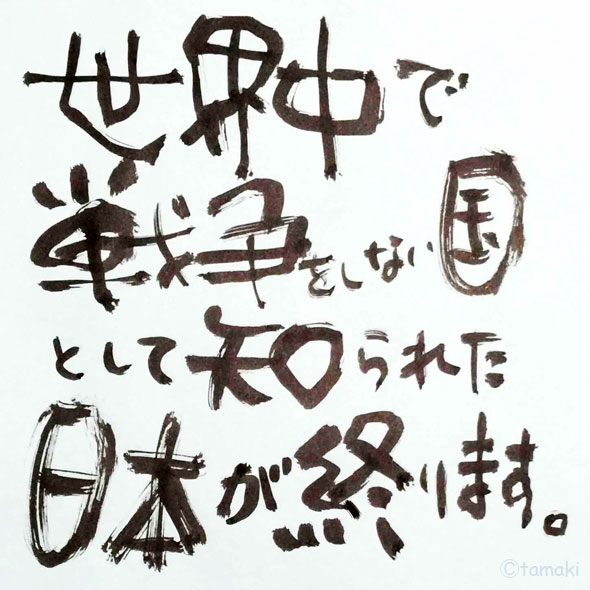 世界中で
戦争をしない国
として知られた
日本が終ります。
©tamaki